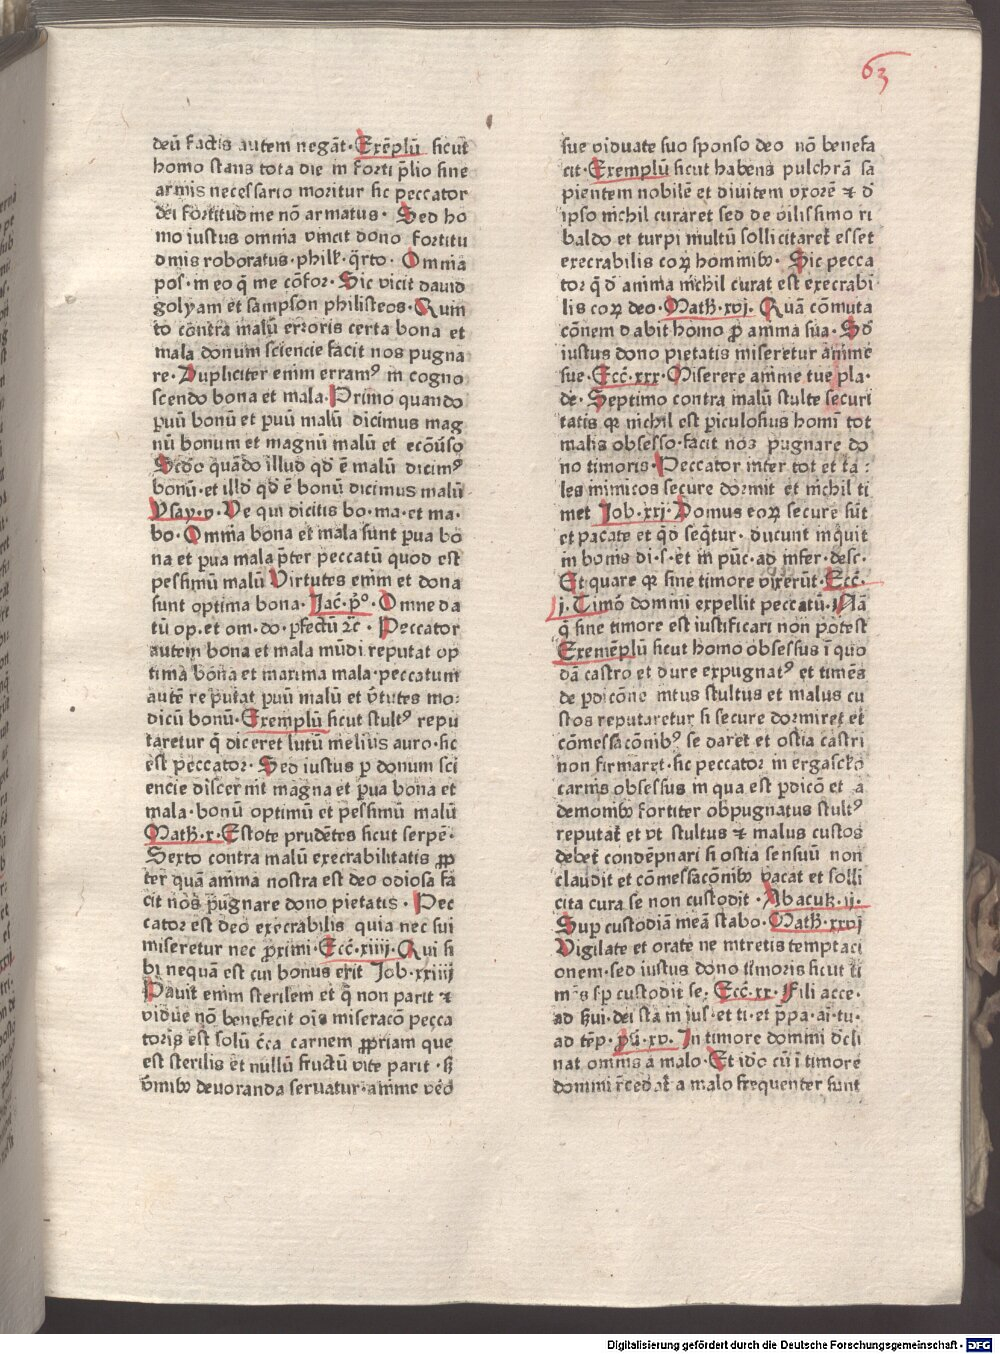 63
deū factis autem negāt· Exēplū sicut
homo stans tota die in forti p̄lio sine
armis necessario moritur sic peccator
dei fortitudine nō armatus· Sed ho
mo iustus omnia vincit dono fortitu
dinis roboratus· philiꝑ· q̄rto· Omnia
pos· in eo q̄ me cōfor· Sic vicit dauid
golyam et sampson philisteos· Quin
to contra malū erroris certa bona et
mala donum sciencie facit nos pugna
re· Dupliciter enim erramꝰ in cogno
scendo bona et mala· Primo quando
ꝑuū bonū et ꝑuū malū dicimus mag
nū bonum et magnū malū et ecōuſo
Scdo quādo illud qd̄ ē malū dicimꝰ
bonū· et illd̄ qd̄ ē bonū dicimus malū
Ysay· v· Ve qui dicitis bo· ma· et ma·
bo· Omnia bona et mala sunt ꝑua bo
na et ꝑua mala p̄ter peccatū quod est
pessimū malū Virtutes enim et dona
sunt optima bona· Jac̄· p̄º· Omne da
tū op· et om· do· ꝑfectū ⁊c̄· Peccator
autem bona et mala mūdi reputat op
tima bona et maxima mala· peccatum
autē reputat ꝑuū malū et v̄tutes mo·
dicū bonū· Exemplū sicut stultꝰ repu
taretur q̄ diceret lutū melius auro· sic
est peccator· Sed iustus ꝑ donum sci
encie discernit magna et ꝑua bona et
mala· bonū optimū et pessimū malū
Math̄· x· Estote prudētes sicut serpē·
Sexto contra malū execrabilitatis ꝓp
ter quā anima nostra est deo odiosa fa
cit nos pugnare dono pietatis· Pec
cator est deo execrabilis quia nec sui
miseretur nec ꝓximi· Ecc̄· xiiii· Qui si
bi nequā est cui bonus erit Job· xxiiii
Pauit enim sterilem et q̄ non parit ⁊
vidue nō benefecit oīs miseracō pecca
toris est solū c̄ca carnem ꝓpriam que
est sterilis et nullū fructū vite parit· ſꝫ
v̄mibꝫ deuoranda seruatur· anime v̄o
sue viduate suo sponso deo nō benefa
cit· Exemplū sicut habens pulchrā sa
pientem nobilē et diuitem vxorē ⁊ d̄
ipso nichil curaret sed de vilissimo ri
baldo et turpi multū sollicitaret̄ esset
execrabilis coꝝ hominibꝫ· Sic pecca
tor q̄ d̄ anima nichil curat est execrabi
lis coꝝ deo· Math̄· xvj· Quā cōmuta
cōnem dabit homo ꝓ anima sua· Sꝫ
iustus dono pietatis miseretur anime
sue· Ecc̄· xxx· Miserere anime tue pla·
de· Septimo contra malū stulte securi
tatis qꝛ nichil est ꝑiculosius homī tot
malis obsesso· facit nos pugnare do
no timoris· Peccator inter tot et ta:
les inimicos secure dormit et nichil ti
met Job· xxj· Domus eoꝝ secure sūt
et pacate et qd̄ seq̄tur· ducunt inquit
in bonis di· s· et in pūc· ad infer· desc·
Et quare qꝛ sine timore vixerūt· Ecc̄·
j· Timor̄ domini expellit peccatū· Nā
q̄ sine timore est iustificari non potest
Exemēplū sicut homo obsessus ī quo
dā castro et dure expugnatꝰ et timēs
de ꝓdicōne intus stultus et malus cu
stos reputaretur si secure dormiret et
cōmessacōnibꝰ se daret et ostia castri
non firmaret· sic peccator in ergasclo
carnis obsessus in qua est ꝓdicō et a
demonibꝫ fortiter obpugnatus stultꝰ
reputat̄ et vt stultus ⁊ malus custos
debet̄ condēpnari si ostia sensuū non
claudit et cōmessacōnibꝫ vacat et solli
cita cura se non custodit· Abacuk· ii·
Suꝑ custodiā meā stabo· Math̄· xxvj
Vigilate et orate ne intretis temptaci
onem· sed iustus dono timoris sicut ti
mēs sꝑ custodit se· Ecc̄· xx· Fili acce·
ad ẜui· dei sta in jus· et ti· et p̄pa· aī· tu·
ad tēp· pū· xv· In timore domini dc̄li
nat omnis a malo· Et idō cū ī timore
domini r̄cedat̄ a malo frequenter sunt
Digitalisierung gefördert durch die Deutsche Forschungsgemeinschaft - DFG